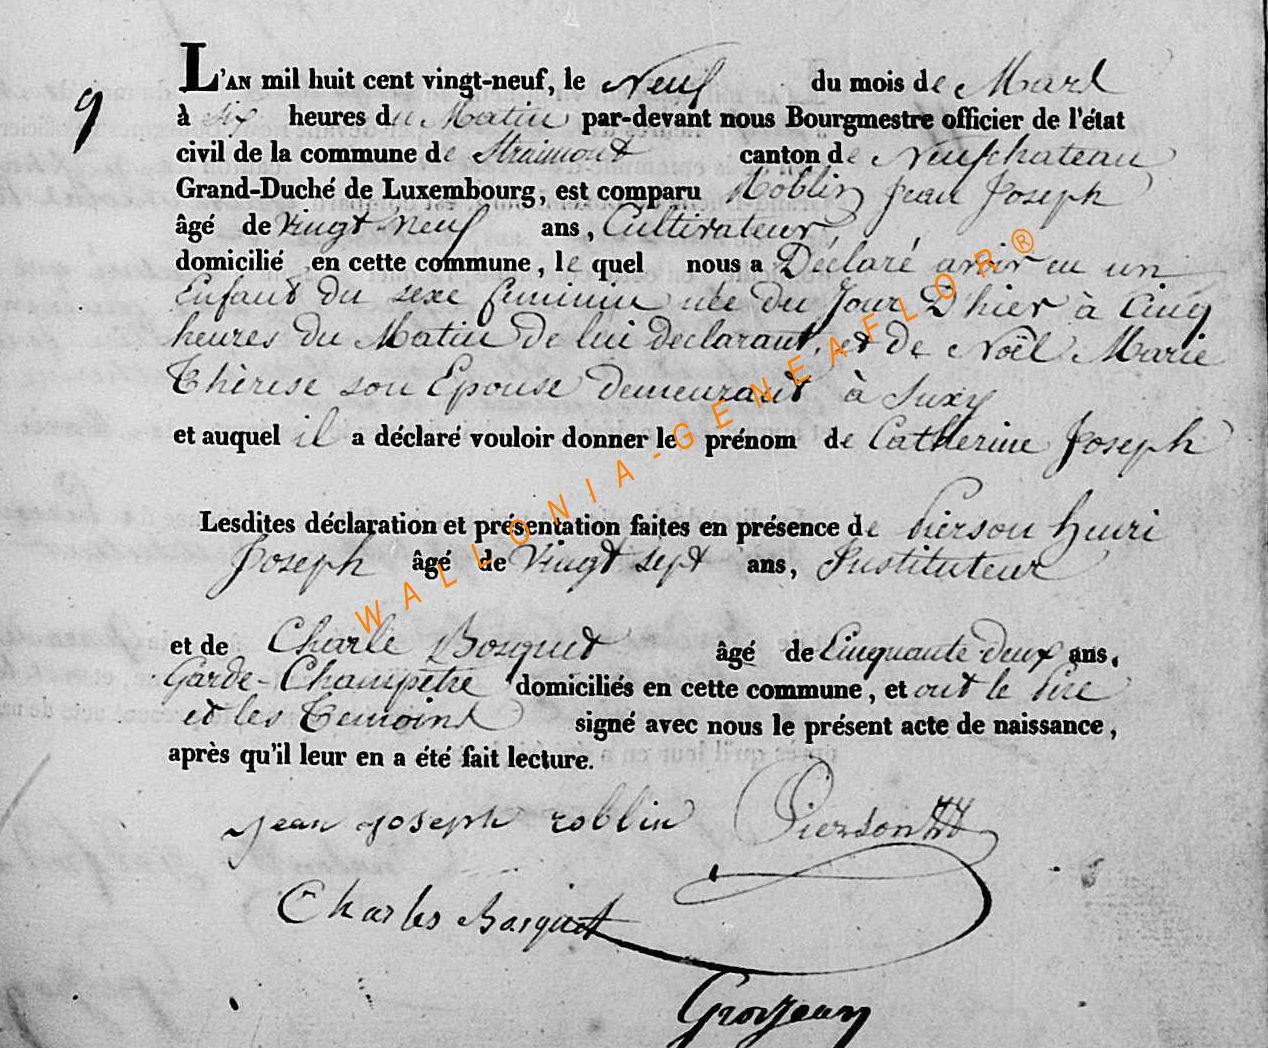 9
L'AN mil huit cent vingt-neuf, le Neuf du mois de Mars
à six heures du Matin par-devant nous Bourgmestre officier de l'état
civil de la commune de Straimont canton de Neufchateau
Grand-Duché de Luxembourg, est comparu Roblin Jean Joseph
âgé de Vingt Neuf ans, Cultivateur,
domicilié en cette commune, le quel nous a Déclaré avoir eu un
Enfant du sexe feminin née du Jour D'hier à Cinq
heures du Matin de lui declarant, et de Noël Marie
Thèrese son Epouse demeurant à Suxy
et auquel il a déclaré vouloir donner le prénom de Catherine Joseph
Lesdites déclaration et présentation faites en présence de Pierson Henri
Joseph âgé de Vingt sept ans, Instituteur
et de Charle Bosquet âgé de Cinquante deux ans,
Garde-Champêtre domiciliés en cette commune, et ont le Père
et les Temoins signé avec nous le présent acte de naissance,
après qu'il leur en a été fait lecture.
jean joseph roblin Pierson
Charles Bosquet
Grosjean
WALLONIA-GENEAFLOR®